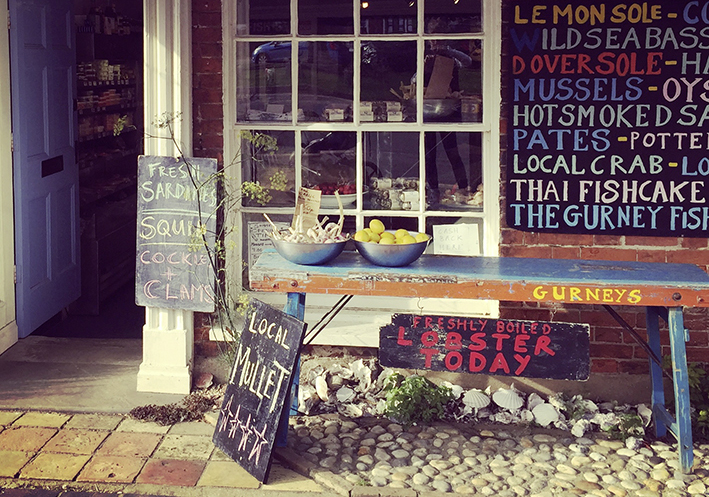 LEMON SOLE - CO
WILD SEA BASS
DOVER SOLE - HA
MUSSELS - OYS
HOT SMOKED SA
PATES - POTTE
LOCAL CRAB - LO
THAI FISHCAKE
THE GURNEY FISH
FRESH
SARDINES
SQUID
COCKLE
+
CLAMS
GURNEYS
FRESHLY BOILED
LOBSTER
TODAY
LOCAL
MULLET